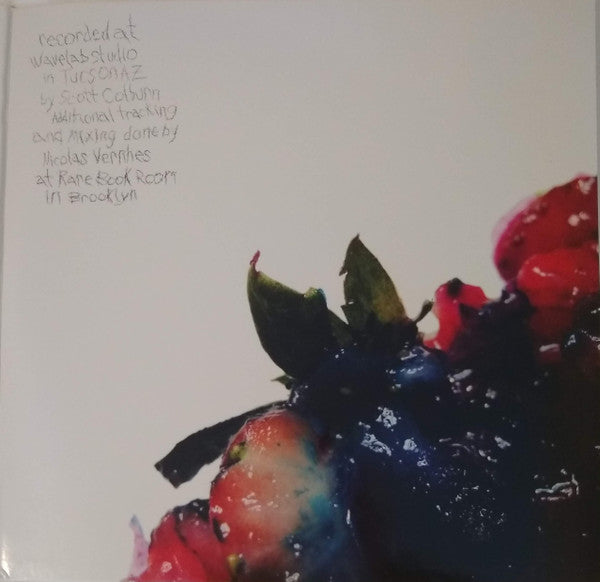 recorded at
wavelab studio
in TUCSON AZ
by Scott Colburn
Additional tracking
and mixing done by
Nicolas Vernhes
at Rare Book Room
in Brooklyn